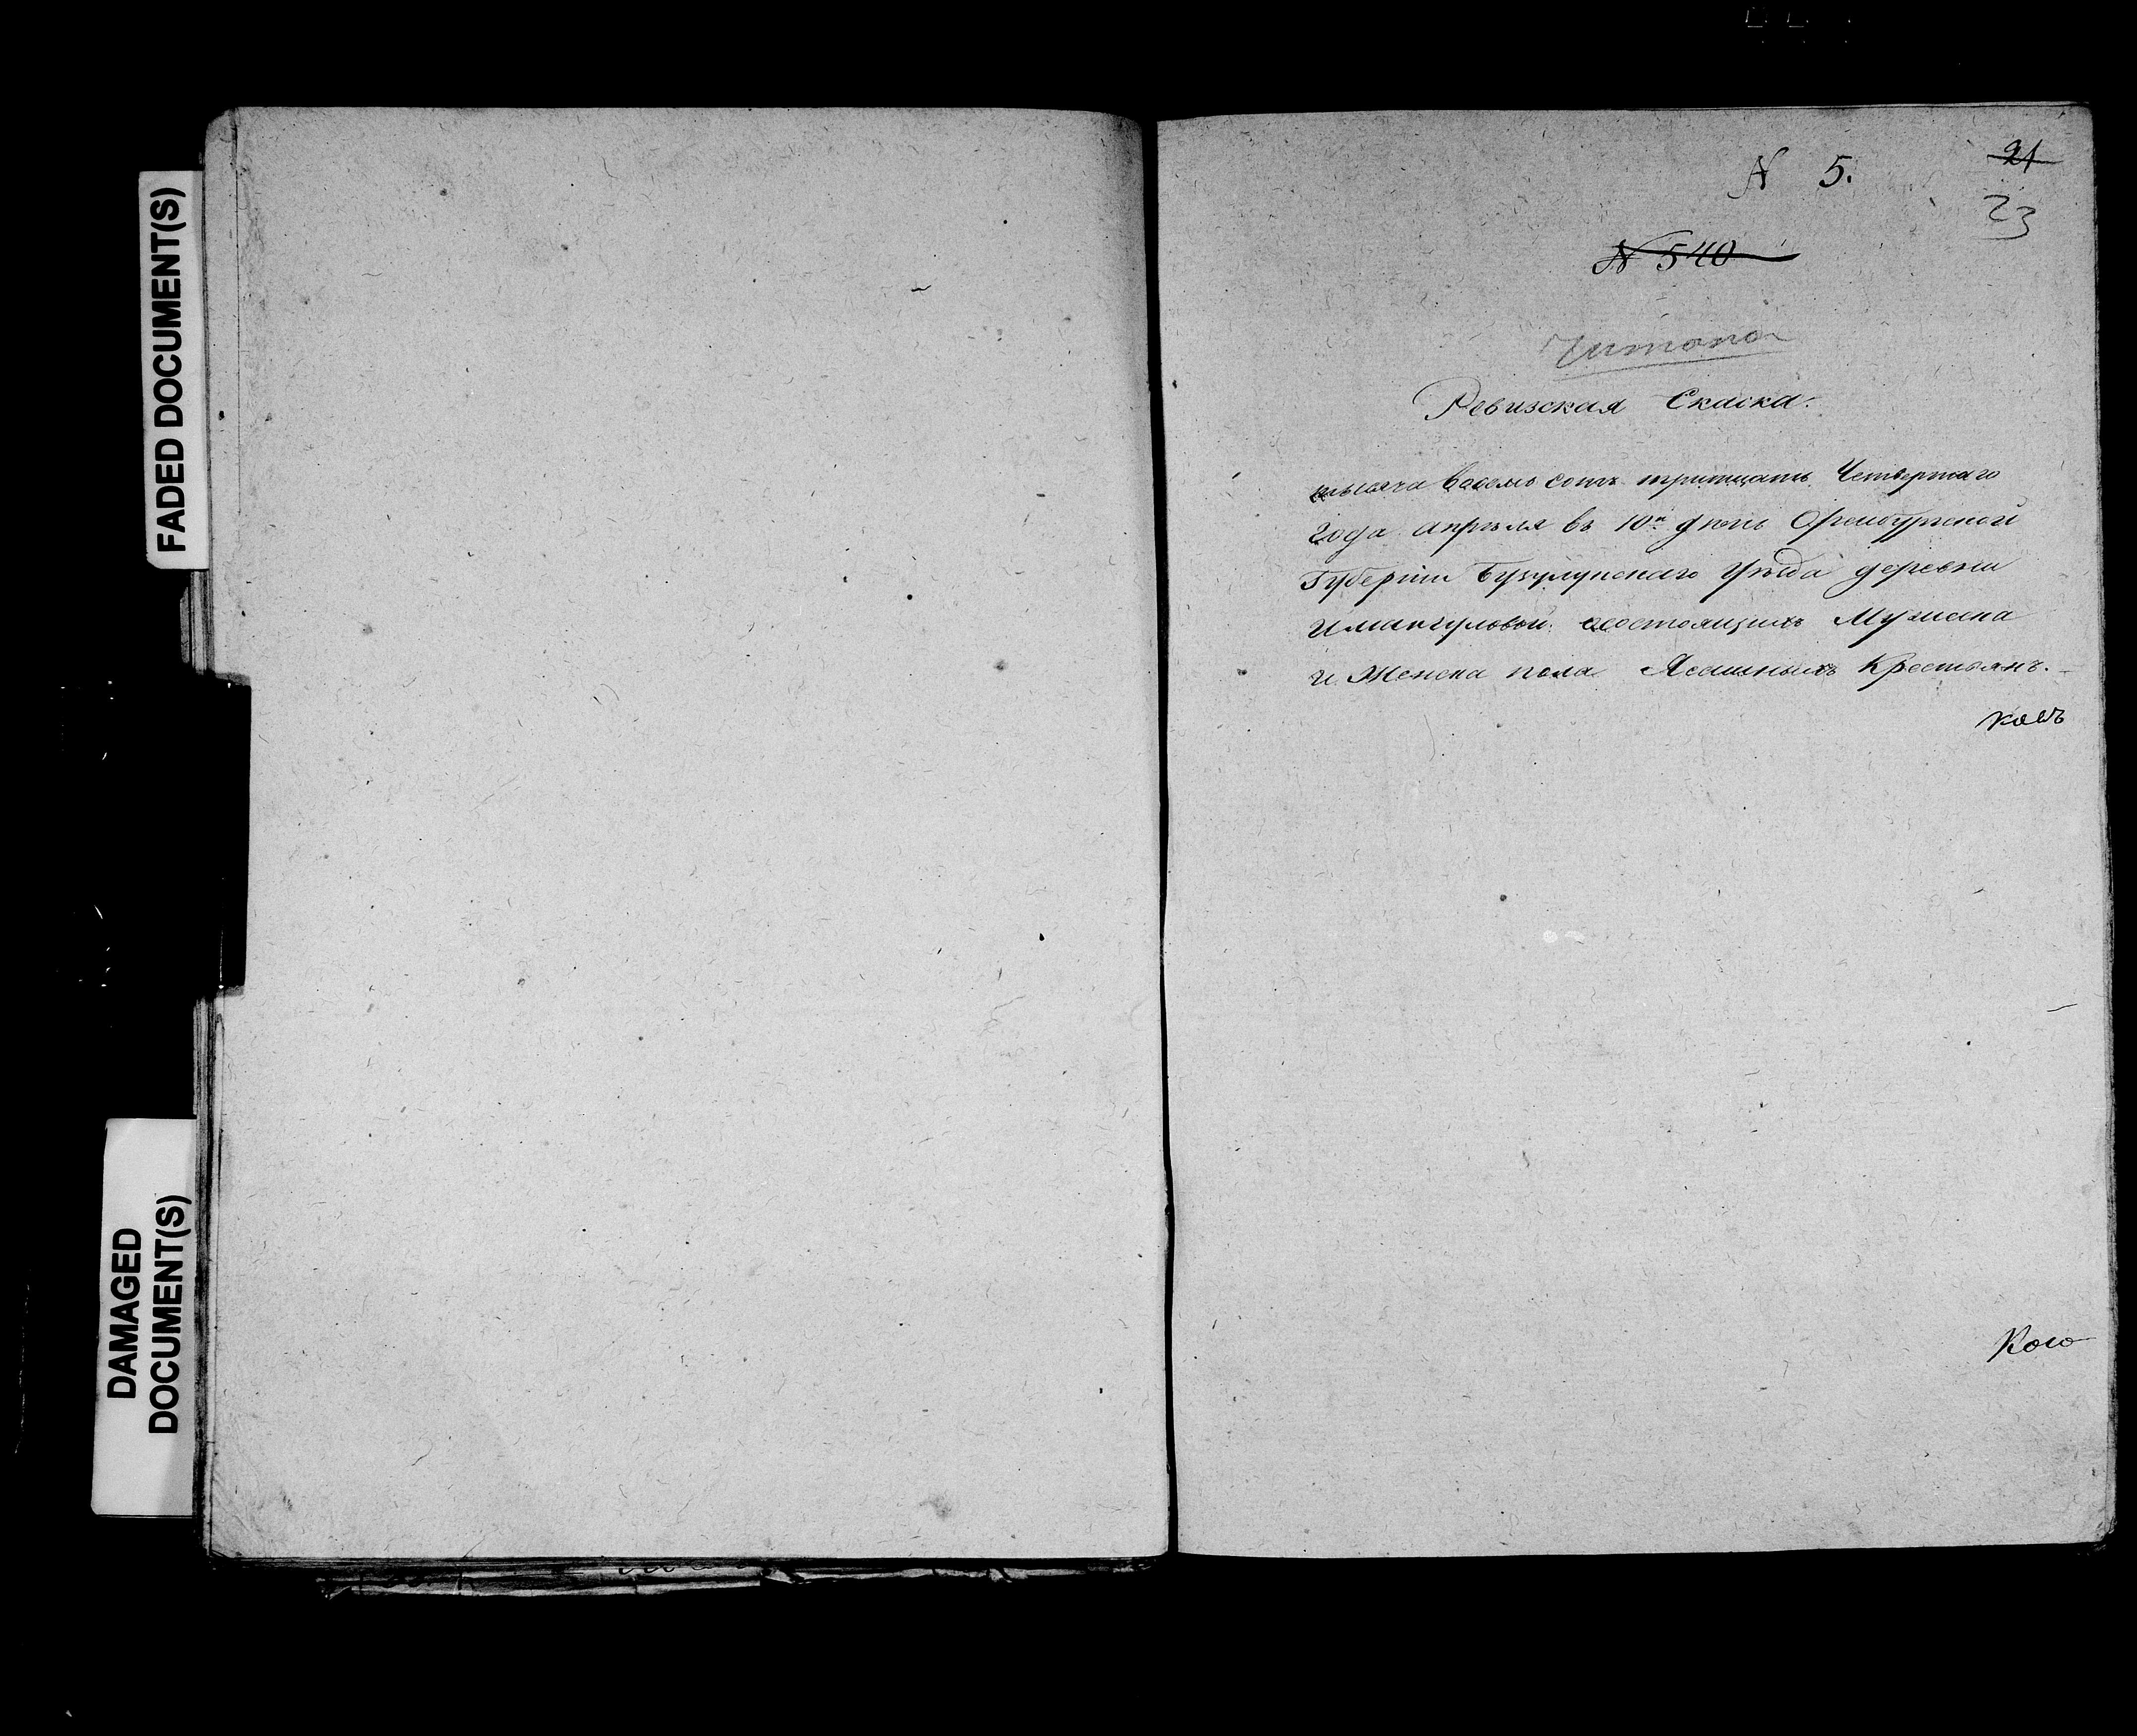 FADED DOCUMENT(S)
DAMAGED
DOCUMENT(S)
N 5.
21
23
N 540
Читана
Ревизская Скаска.
тысяча восемь сотъ тритцать Четвертаго
Года апреля въ 10й день Оренбургской
Губерніи Бузулуцкаго Уѣзда деревни
Имангуловой состоящихъ Мужеска
и Женска пола Ясашныхъ Крестьянъ.